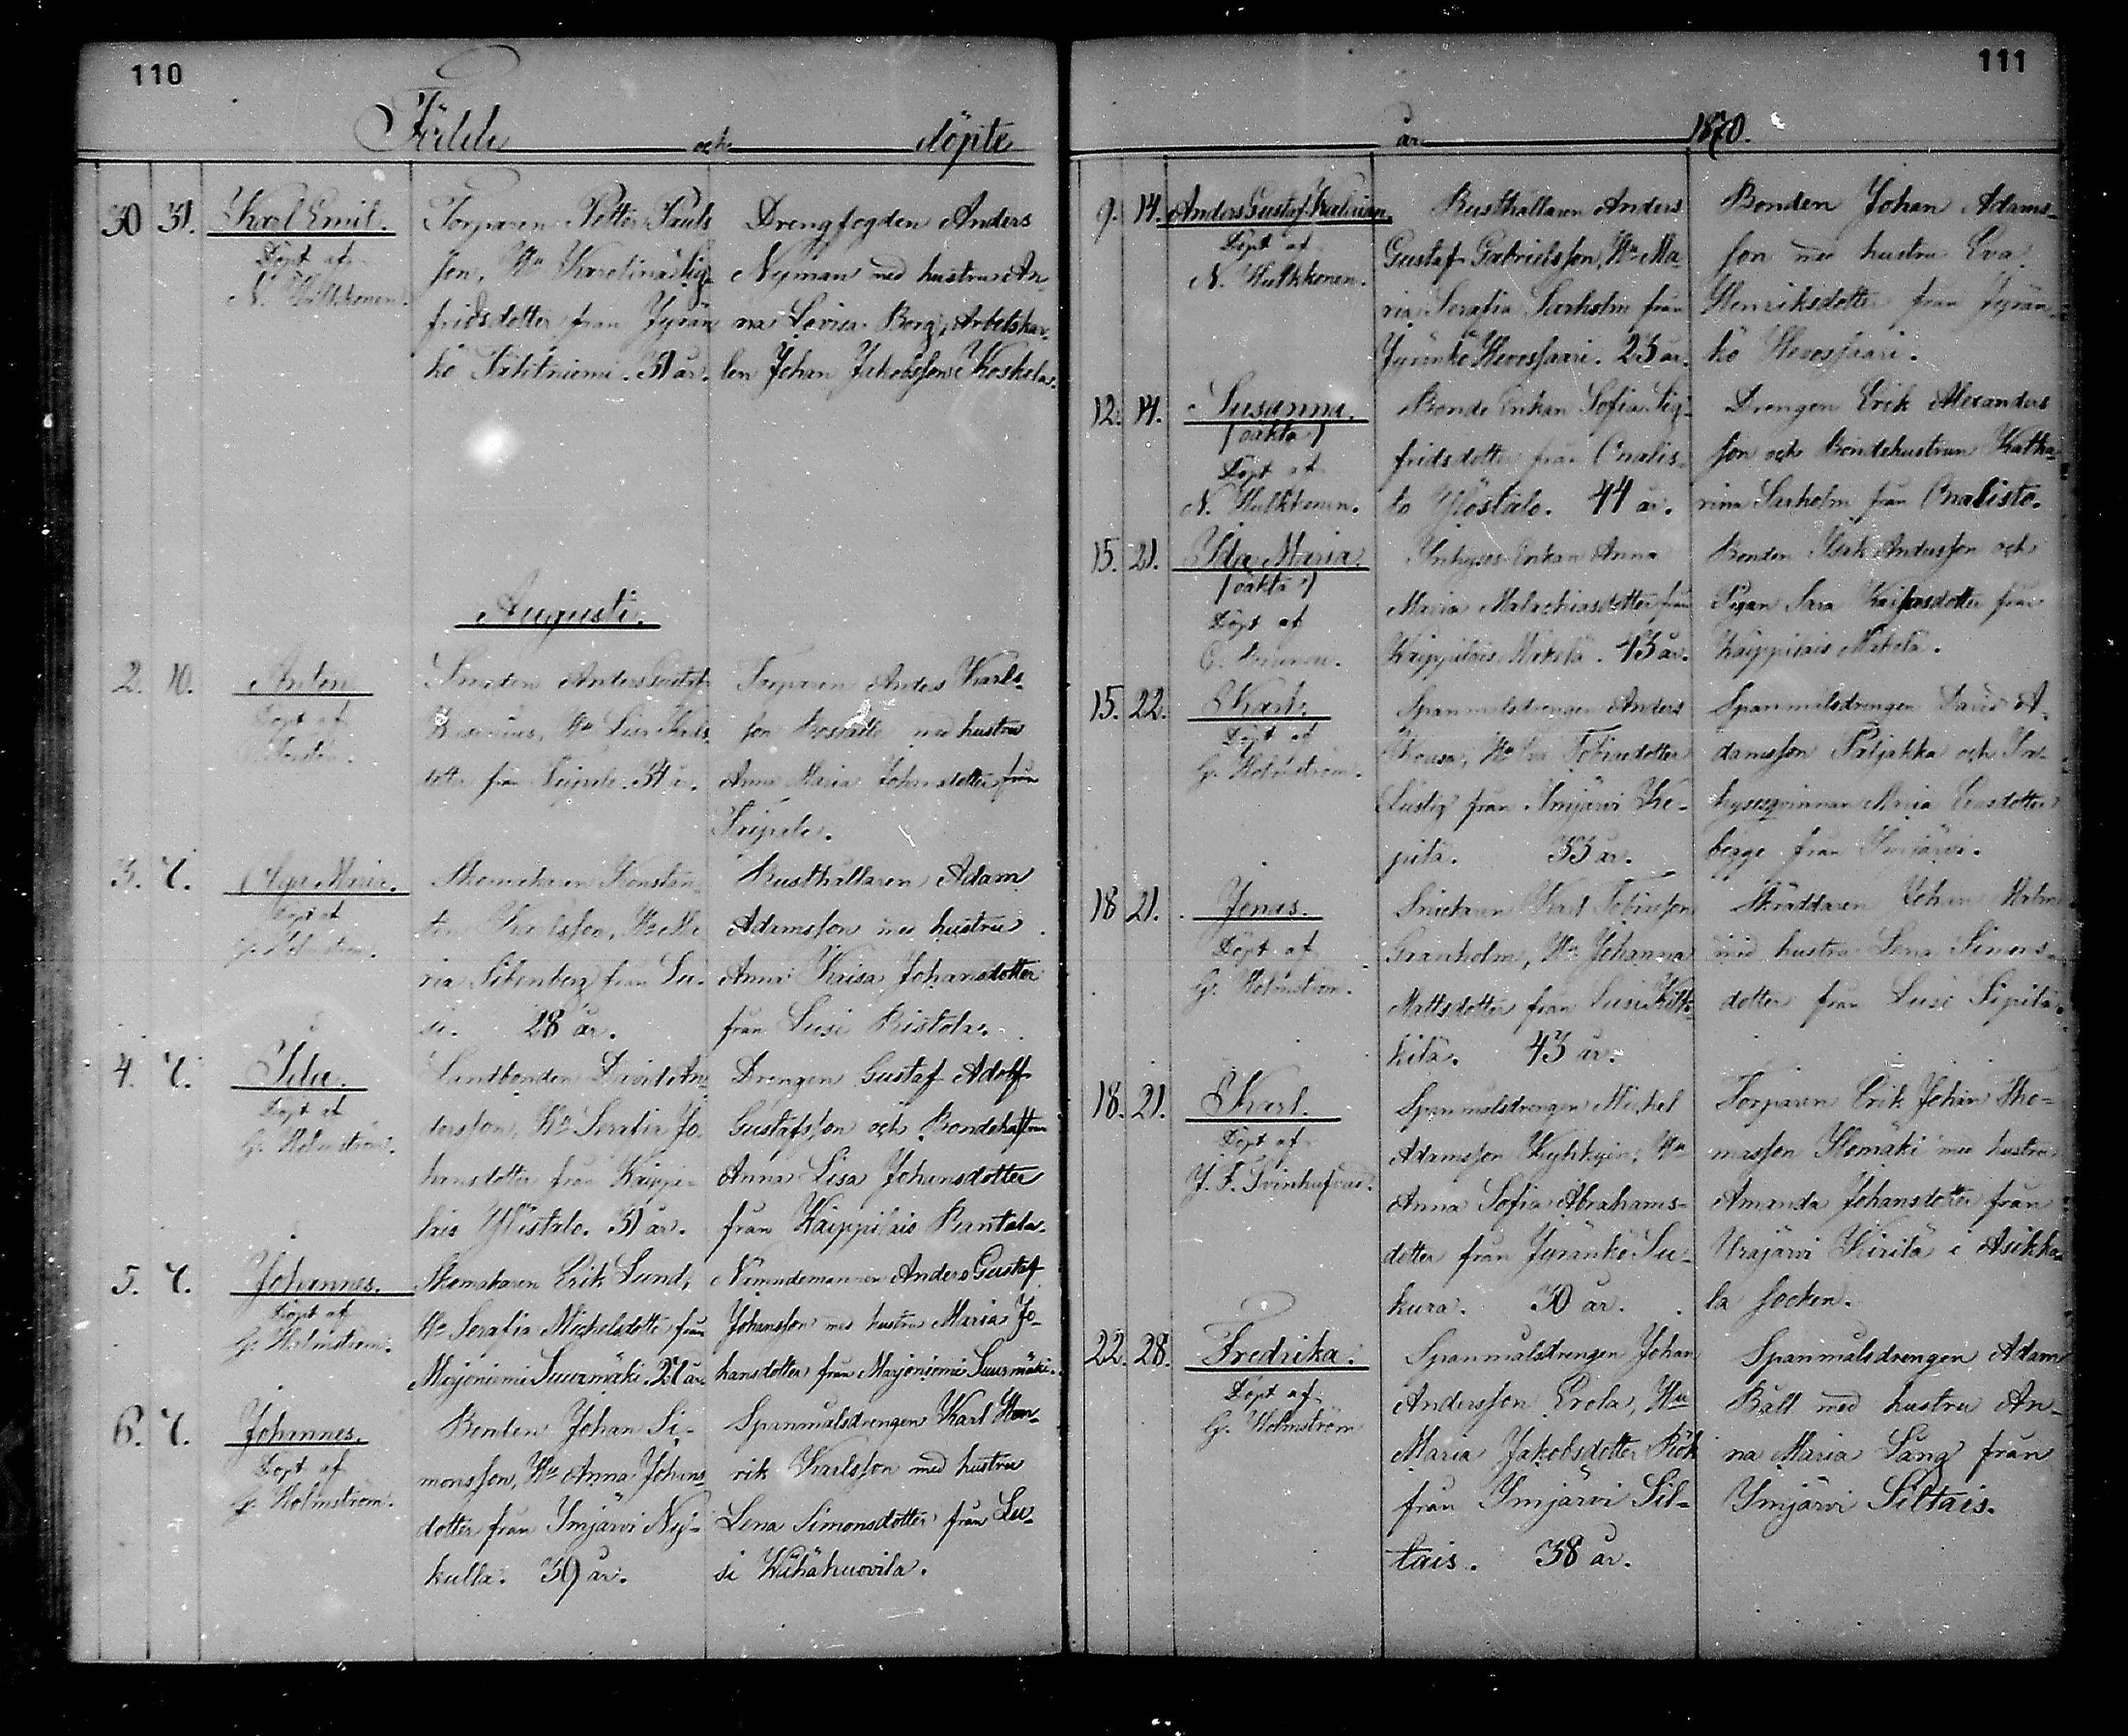 110
Födde och döpte
30 31. Karl Emil.
Döpt af
N. Hulkkonen.
Torparen Petter Pauls
son, Hu Karolina Sig-
fridsdotter från Jyrän
kö Tähtiniemi. 31 år.
Drengfogden Anders
Nyman med hustru An-
na Lovisa Borg, Arbetskar-
len Johan Jakobsson Koskelas.
Augusti.
2. 10. Anton
Döpt af
Anders Gustaf
Hu Lisa Karls
dotter från Seipele. 34 år.
Torparen Anders Karls-
son med hustru
Anna Maria Johansdotter från
Seipele.
3. 7. Maria.
Döpt af
G. Holmström.
Skomakaren Konstan
tin Karlsson, Hu Ma
ria från Lu-
si. 28 år.
Rusthållaren Adam
Adamsson med hustru
Anna Kaisa Johansdotter
från Lusi Ristola.
4. 7. Ida.
Döpt af
G. Holmström.
Landbonden David An
dersson, Hu Serafia Jo
hansdotter från Kaippi-
lais Ylöstalo. 31 år.
Drengen Gustaf Adolf
Gustafsson och Bondehustrun
Anna Lisa Johansdotter
från Kaippilais Rantala.
5. 7. Johannes.
Döpt af
G. Holmström.
Skomakaren Erik Lund,
Hu Serafia Michelsdotter från
Marjoniemi Suurmäki. 27 år.
Nämndemannen Anders Gustaf
Johansson med hustru Maria Jo-
hansdotter från Marjoniemi Suurmäki.
6. 7. Johannes.
Döpt af
G. Holmström.
Bonden Johan Si-
monsson, Hu Anna Johans
dotter från Ymjärvi Ny-
kulla. 39 år.
Spanmålsdrengen Karl Hen-
rik Karlsson med hustru
Lena Simonsdotter från Lu-
si Wähähuovila.
111
år 1870.
9. 14. Anders Gustaf Kalevian.
Döpt af
N. Hulkkonen.
Rusthållaren Anders
Gustaf Gabrielsson, Hu Ma-
ria Serafia Sarholm från
Jyränkö Hevossaari. 23 år.
Bonden Johan Adams-
son med hustru Eva
Henriksdotter från Jyrän-
kö Hevossaari.
12. 14. Susanna.
(oäkta)
Döpt af
N. Hulkkonen.
Bonde Enkan Sofia Sig-
fridsdotter från Onalis-
to Ylöstalo. 44 år.
Drengen Erik Alexanders
son och Bondehustrun Katha-
rina Sarholm från Onalisto.
15. 21. Ida Maria.
(oäkta)
Döpt af
Inhyses Enkan Anna
Maria Malachiasdotter från
Kaippilais Mäkelä. 43 år.
Bonden Isak Andersson och
Pigan Sara Kaifasdotter från
Kaippilais Mäkelä.
15. 22. Karl.
Döpt af
G. Holmström.
Spanmålsdrengen Anders
Rousu, Hu Eva Tobiasdotter
Lustig från Ymjärvi Ke-
pilä. 33 år.
Spanmålsdrengen David A-
damsson Paljakka och In-
hysesqvinnan Maria Enasdotter
begge från Ymjärvi.
18 21. Jonas.
Döpt af
G. Holmström.
Snickaren Karl Tobiasson
Granholm, Hu Johanna
Mattsdotter från Lusi Kitti-
kilä. 43 år.
Skräddaren Johan Malm
med hustru Lena Simons-
dotter från Lusi Sipilä.
18. 21. Karl.
Döpt af
J. F. Svinhufvud.
Spanmålsdrengen Michel
Adamsson Kyhkyin, Hu
Anna Sofia Abrahams-
dotter från Jyränkö Su-
kura. 30 år.
Torparen Erik Johan Tho-
masson Ylemäki med hustru
Amanda Johansdotter från
Urajärvi Kirilä i Asikka-
la socken.
22. 28. Fredrika.
Döpt af
G. Holmström
Spanmålsdrengen Johan
Andersson Erola, Hu
Maria Jakobsdotter Rök
från Ymjärvi Sil-
tais. 38 år.
Spanmålsdrengen Adam
Båll med hustru An-
na Maria Lång från
Ymjärvi Siltais.